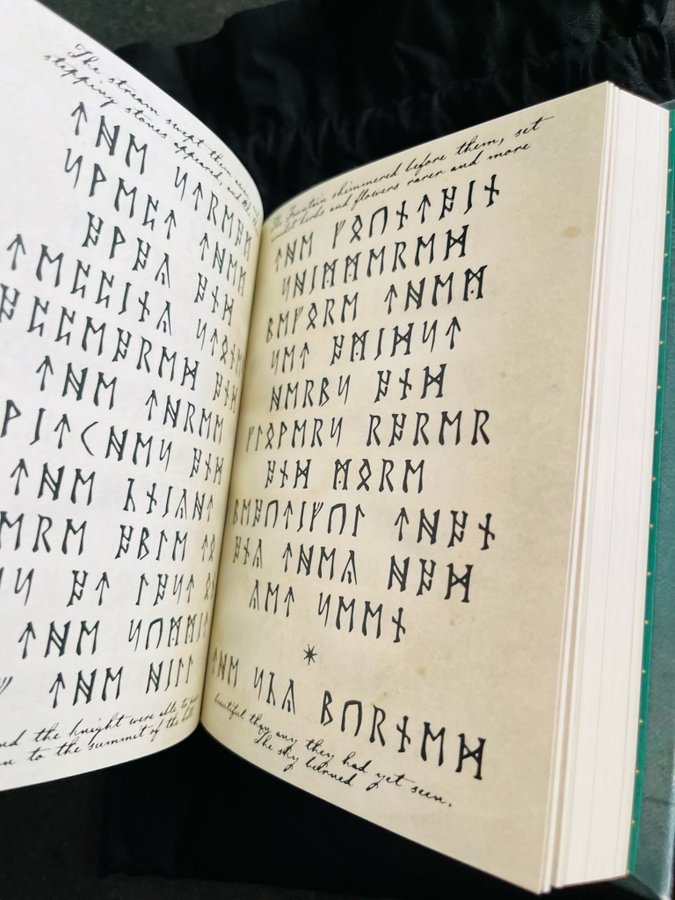 The stream swept them
stepping stones appeared, and the
ᛏᚺᛖ ᛋᛏᚱᛖᚨᛗ
ᛋᚹᛖᛈᛏ ᛏᚺᛖᛗ
ᚨᚹᚨᚤ ᚨᚾᛞ
ᛏᛖᛈᛈᛁᚾᚷ ᛋᛏᚩᚾᛖ
ᚨᛈᛈᛖᚨᚱᛖᛞ ᚨᚾᛞ
ᛏᚺᛖ ᛏᚺᚱᛖᛖ
ᚹᛁᛏᚲᚺᛖᛋ ᚨᚾᛞ
ᛏᚺᛖ ᚴᚾᛁᚷᚺᛏ
ᛖᚱᛖ ᚨᛒᛚᛖ ᛏᚩ
ᛋ ᚨᛏ ᛚᚨᛋᛏ
ᛏᚺᛖ ᛋᚢᛗᛗᛁ
ᚠ ᛏᚺᛖ ᚺᛁᛚᛚ
and the knight were able to
to the summit of the hill
The Fountain shimmered before them, set
amidst herbs and flowers rarer and more
ᛏᚺᛖ ᚠᚩᚢᚾᛏᚨᛁᚾ
ᛋᚺᛁᛗᛗᛖᚱᛖᛞ
ᛒᛖᚠᚩᚱᛖ ᛏᚺᛖᛗ
ᛋᛖᛏ ᚨᛗᛁᛞᛋᛏ
ᚺᛖᚱᛒᛋ ᚨᚾᛞ
ᚠᛚᚩᚹᛖᚱᛋ ᚱᚨᚱᛖᚱ
ᚨᚾᛞ ᛗᚩᚱᛖ
ᛒᛖᚨᚢᛏᛁᚠᚢᛚ ᛏᚺᚨᚾ
ᚨᚾᚤ ᛏᚺᛖᚤ ᚺᚨᛞ
ᚤᛖᛏ ᛋᛖᛖᚾ
*
ᛏᚺᛖ ᛋᚴᚤ ᛒᚢᚱᚾᛖᛞ
beautiful than any they had yet seen.
The sky burned